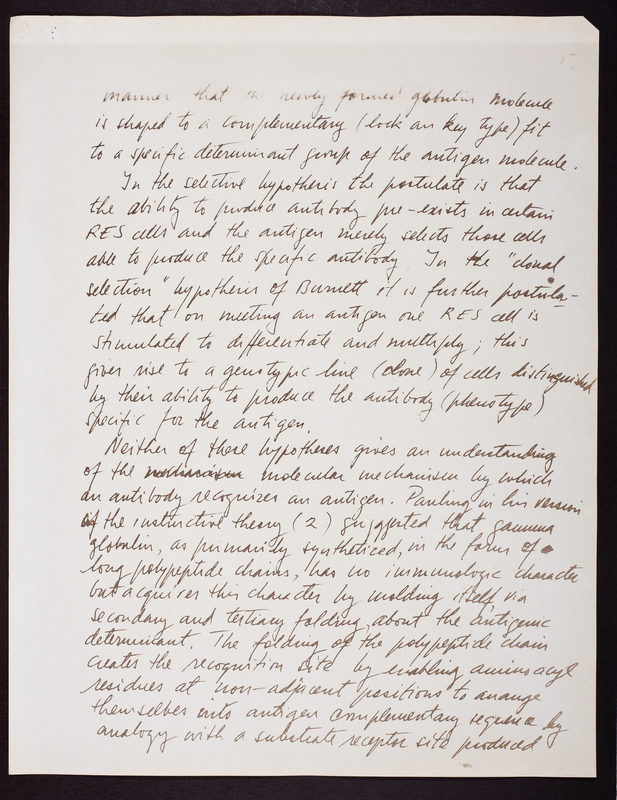 5.
manner that the newly formed globulin molecule
is shaped to a complementary (lock an key type) fit
to a specific determinant group of the antigen molecule.
In the selective hypothesis the postulate is that
the ability to produce antibody pre-exists in certain
RES cells and the antigen merely selects those cells
able to produce the specific antibody. In the "clonal
selection" hypothesis of Burnett it is further postula-
ted that on meeting an antigen one RES cell is
stimulated to differentiate and multiply; this
gives rise to a genotypic line (clone) of cells distinguished
by their ability to produce the antibody (phenotype)
specific for the antigen.
Neither of these hypotheses gives an understanding
of the mechanism molecular mechanism by which
an antibody recognizes an antigen. Pauling in his version
of the instructive theory (2) suggested that gamma
globulin, as primarily synthetized, in the form of
long polypeptide chains, has no immunologic character
but acquires this character by molding itself, via
secondary and tertiary folding, about the antigenic
determinant. The folding of the polypeptide chain
creates the recognition site by enabling aminoacyl
residues at non-adjacent positions to arrange
themselbes into antigen complementary sequence by
analogy with a substrate receptor site produced